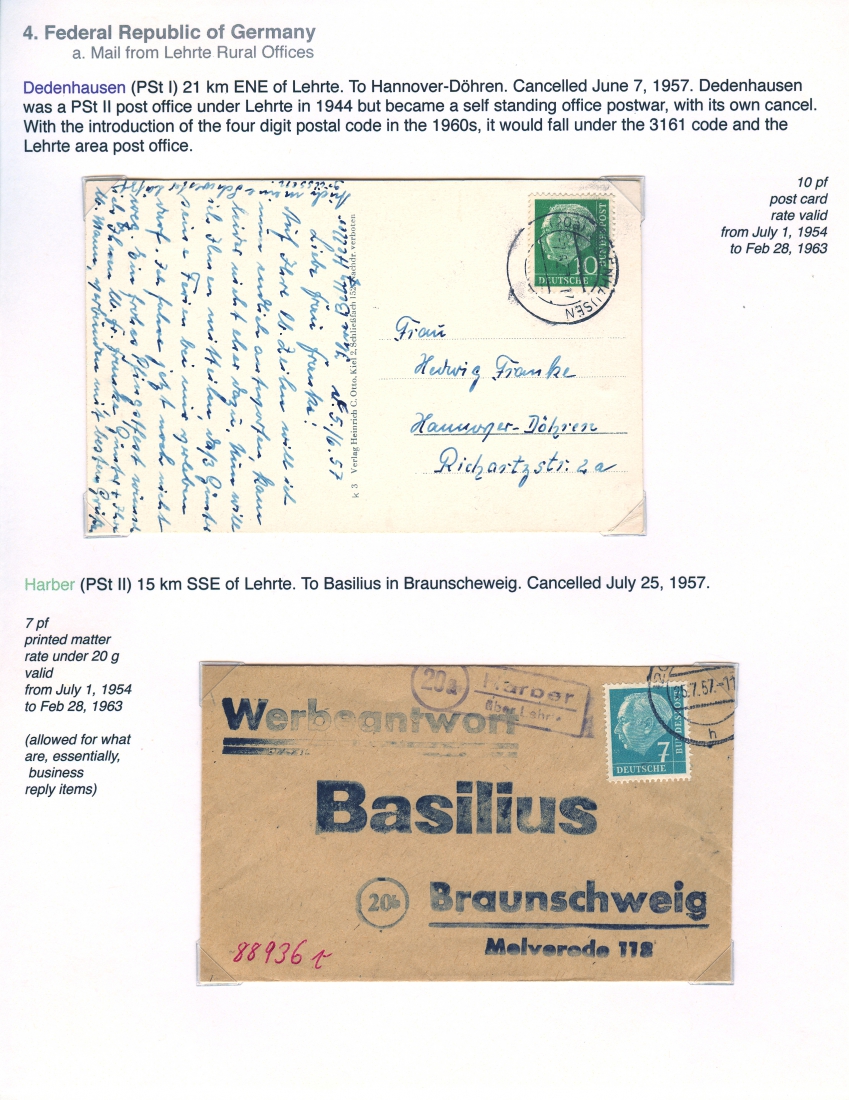 4. Federal Republic of Germany
a. Mail from Lehrte Rural Offices
Dedenhausen (PSt I) 21 km ENE of Lehrte. To Hannover-Döhren. Cancelled June 7, 1957. Dedenhausen
was a PSt II post office under Lehrte in 1944 but became a self standing office postwar, with its own cancel.
With the introduction of the four digit postal code in the 1960s, it would fall under the 3161 code and the
Lehrte area post office.
10 pf
post card
rate valid
from July 1, 1954
to Feb 28, 1963
10
DEUTSCHE
BUNDESPOST
HAUSEN
Frau
Hedwig Franke
Hannover-Döhren
Richartzstr. 2a
k 3 Verlag Heinrich C. Otto, Kiel 2, Schließfach 152 Nachdr. verboten
5.6.57
Liebe Frau Franke!
Auf Ihre Zeilen will ich
nun endlich antworten, kam
leider nicht eher dazu. Nun will
ich Ihnen mitteilen, daß Günter
seine Ferien bei mir verleben
darf. Ich fahre jetzt noch nicht
weg. Ein frohes Pfingstfest wünscht
Harber (PSt II) 15 km SSE of Lehrte. To Basilius in Braunscheweig. Cancelled July 25, 1957.
7 pf
printed matter
rate under 20 g
valid
from July 1, 1954
to Feb 28, 1963
(allowed for what
are, essentially,
business
reply items)
20a
Harber
über Lehrte
Werbeantwort
7
DEUTSCHE
BUNDESPOST
25.7.57.-11
h
Basilius
20b
Braunschweig
Melverode 118
88936